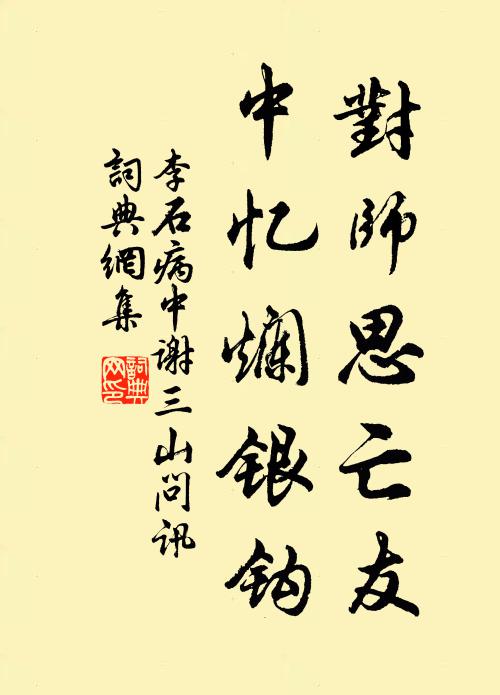 對師思亡友
中忆爛銀鈎
李石病中谢三山问讯
詞典網集
詞典网印